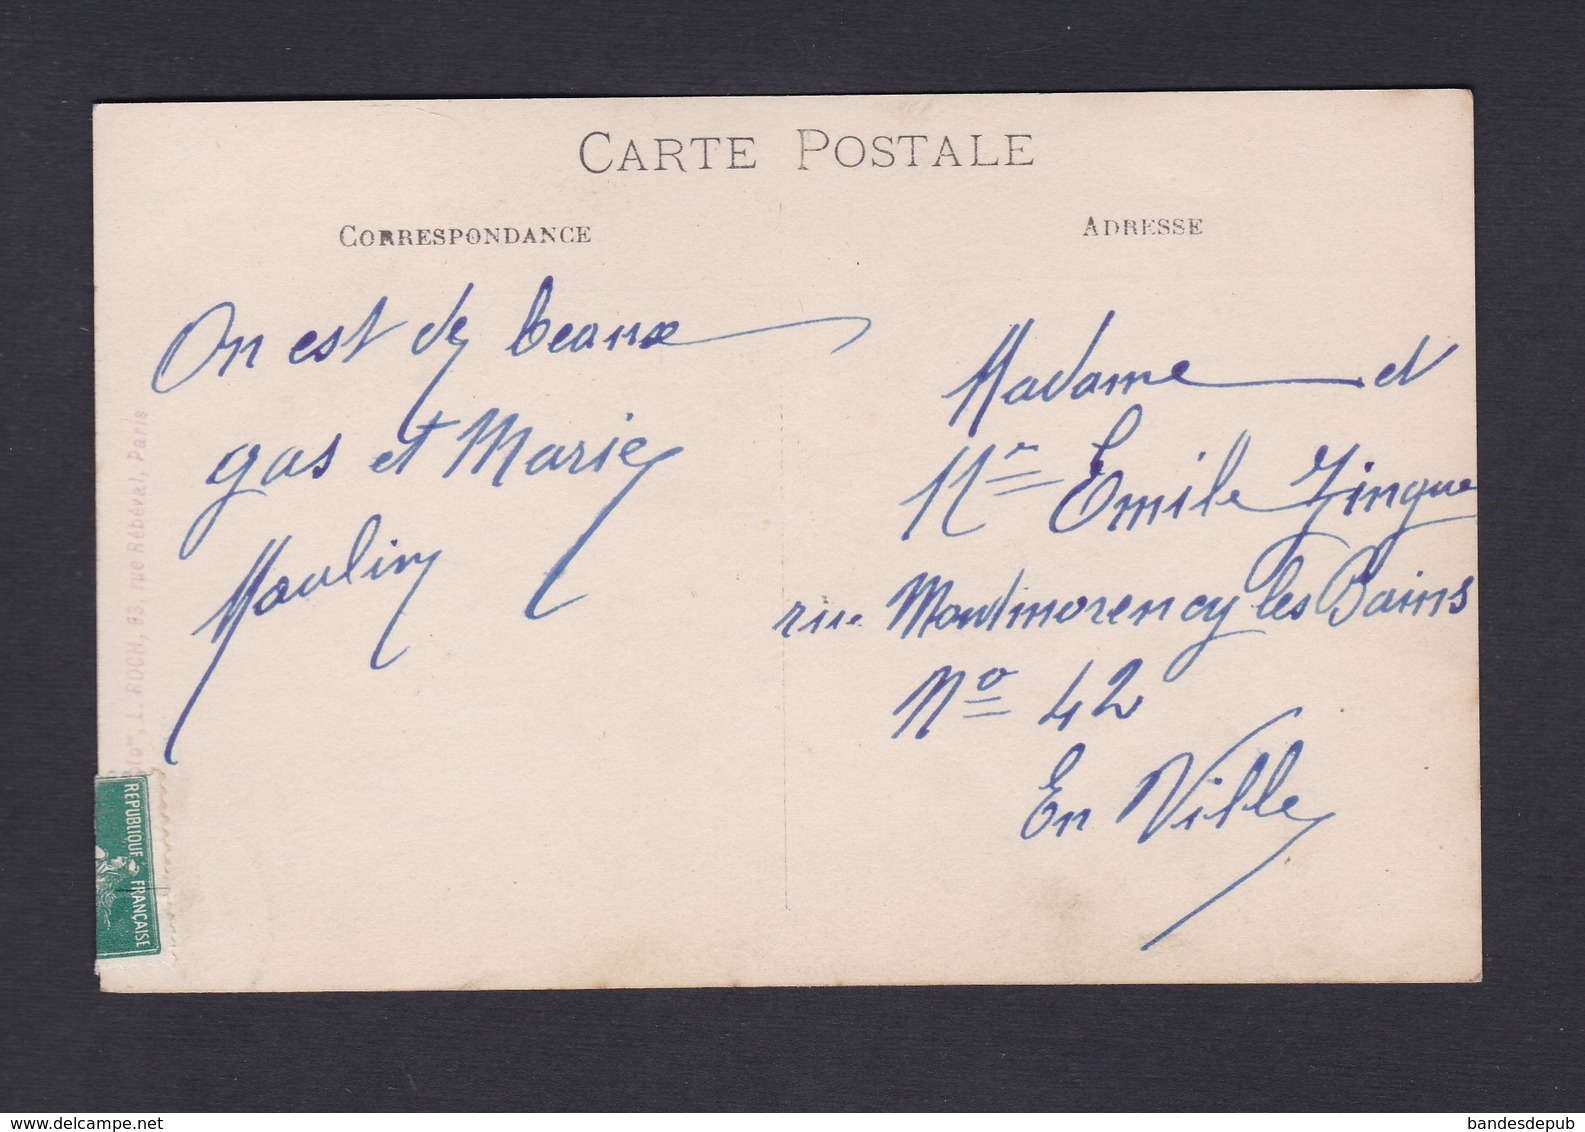 CARTE POSTALE
CORRESPONDANCE
On est de beaux
gas et Marie
Moulin
ADRESSE
Madame et
Mr Emile Zingue
rue Montmorency les Bains
No 42
En Ville
L. ROCH, 93, rue Rébéval, Paris
REPUBLIQUE FRANÇAISE
www.delcampe.net
bandesdepub